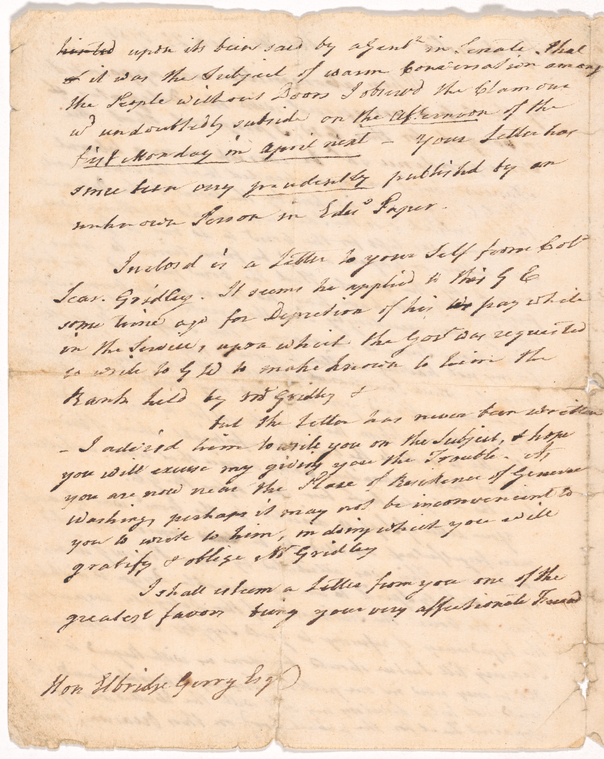 upon its been said by a Gent.n in Senate that
it was the Subject of warm Conversation among
the People without Doors I observd the Clamour
wd undoubtedly subside on the afternoon of the
first Monday in April next – Your Letter has
since been very prudently published by an
unknown Person in Edes' Paper.
Inclosd is a Letter to your Self from Colo
Scar. Gridley. It seems he applied to this G C
some time ago for Depretion of his pay while
in the Service, upon which the Govr was requested
to write to G W to make known to him the
Rank held by Mr Gridley &
but the Letter has never been written
– I advisd him to write you on the Subject, & hope
you will excuse my giving you the Trouble – As
you are now near the Place of Residence of General
Washing, perhaps it may not be inconvenient to
you to write to him, in doing which you will
gratify & oblige Mr Gridley
I shall esteem a Letter from you one of the
greatest favors being your very affectionate Friend
Hon Elbridge Gerry Esqr